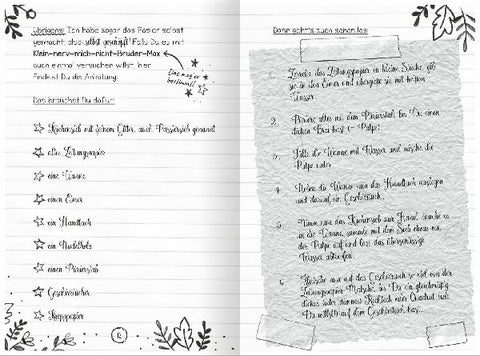 Übrigens: Ich habe sogar das Papier selbst
gemacht, also selbst geschöpft! Falls Du es mit
Klein-nerv-mich-nicht-Bruder-Max
auch einmal versuchen willst, hier
findest Du die Anleitung.
Das brauchst Du dafür:
Küchensieb mit feinem Gitter, auch Passiersieb genannt
altes Zeitungspapier
eine Wanne
einen Eimer
ein Handtuch
ein Nudelholz
einen Pürierstab
Geschirrtücher
12
Dann geht's auch schon los:
Zerreiße das Zeitungspapier in kleine Stücke, gib
sie in den Eimer und übergieße sie mit heißem
Wasser.
2. Püriere alles mit dem Pürierstab bis Du einen
dicken Brei hast (= Pulpe).
3. Fülle die Wanne mit Wasser und mische die
Pulpe unter.
4. Neben die Wanne nun das Handtuch auslegen
und darauf ein Geschirrtuch.
5. Nimm nun das Küchensieb zur Hand, tauche es
in die Wanne, sammle mit dem Sieb etwas von
der Pulpe auf und lass das überschüssige
Wasser abtropfen.
6. nun auf das Geschirrtuch so viel von der
Zeitungspapier Matsche, bis Du ein gleichmäßig
dickes oder dünnes Rechteck oder Quadrat (wie
Du willst) auf dem Geschirrtuch hast.